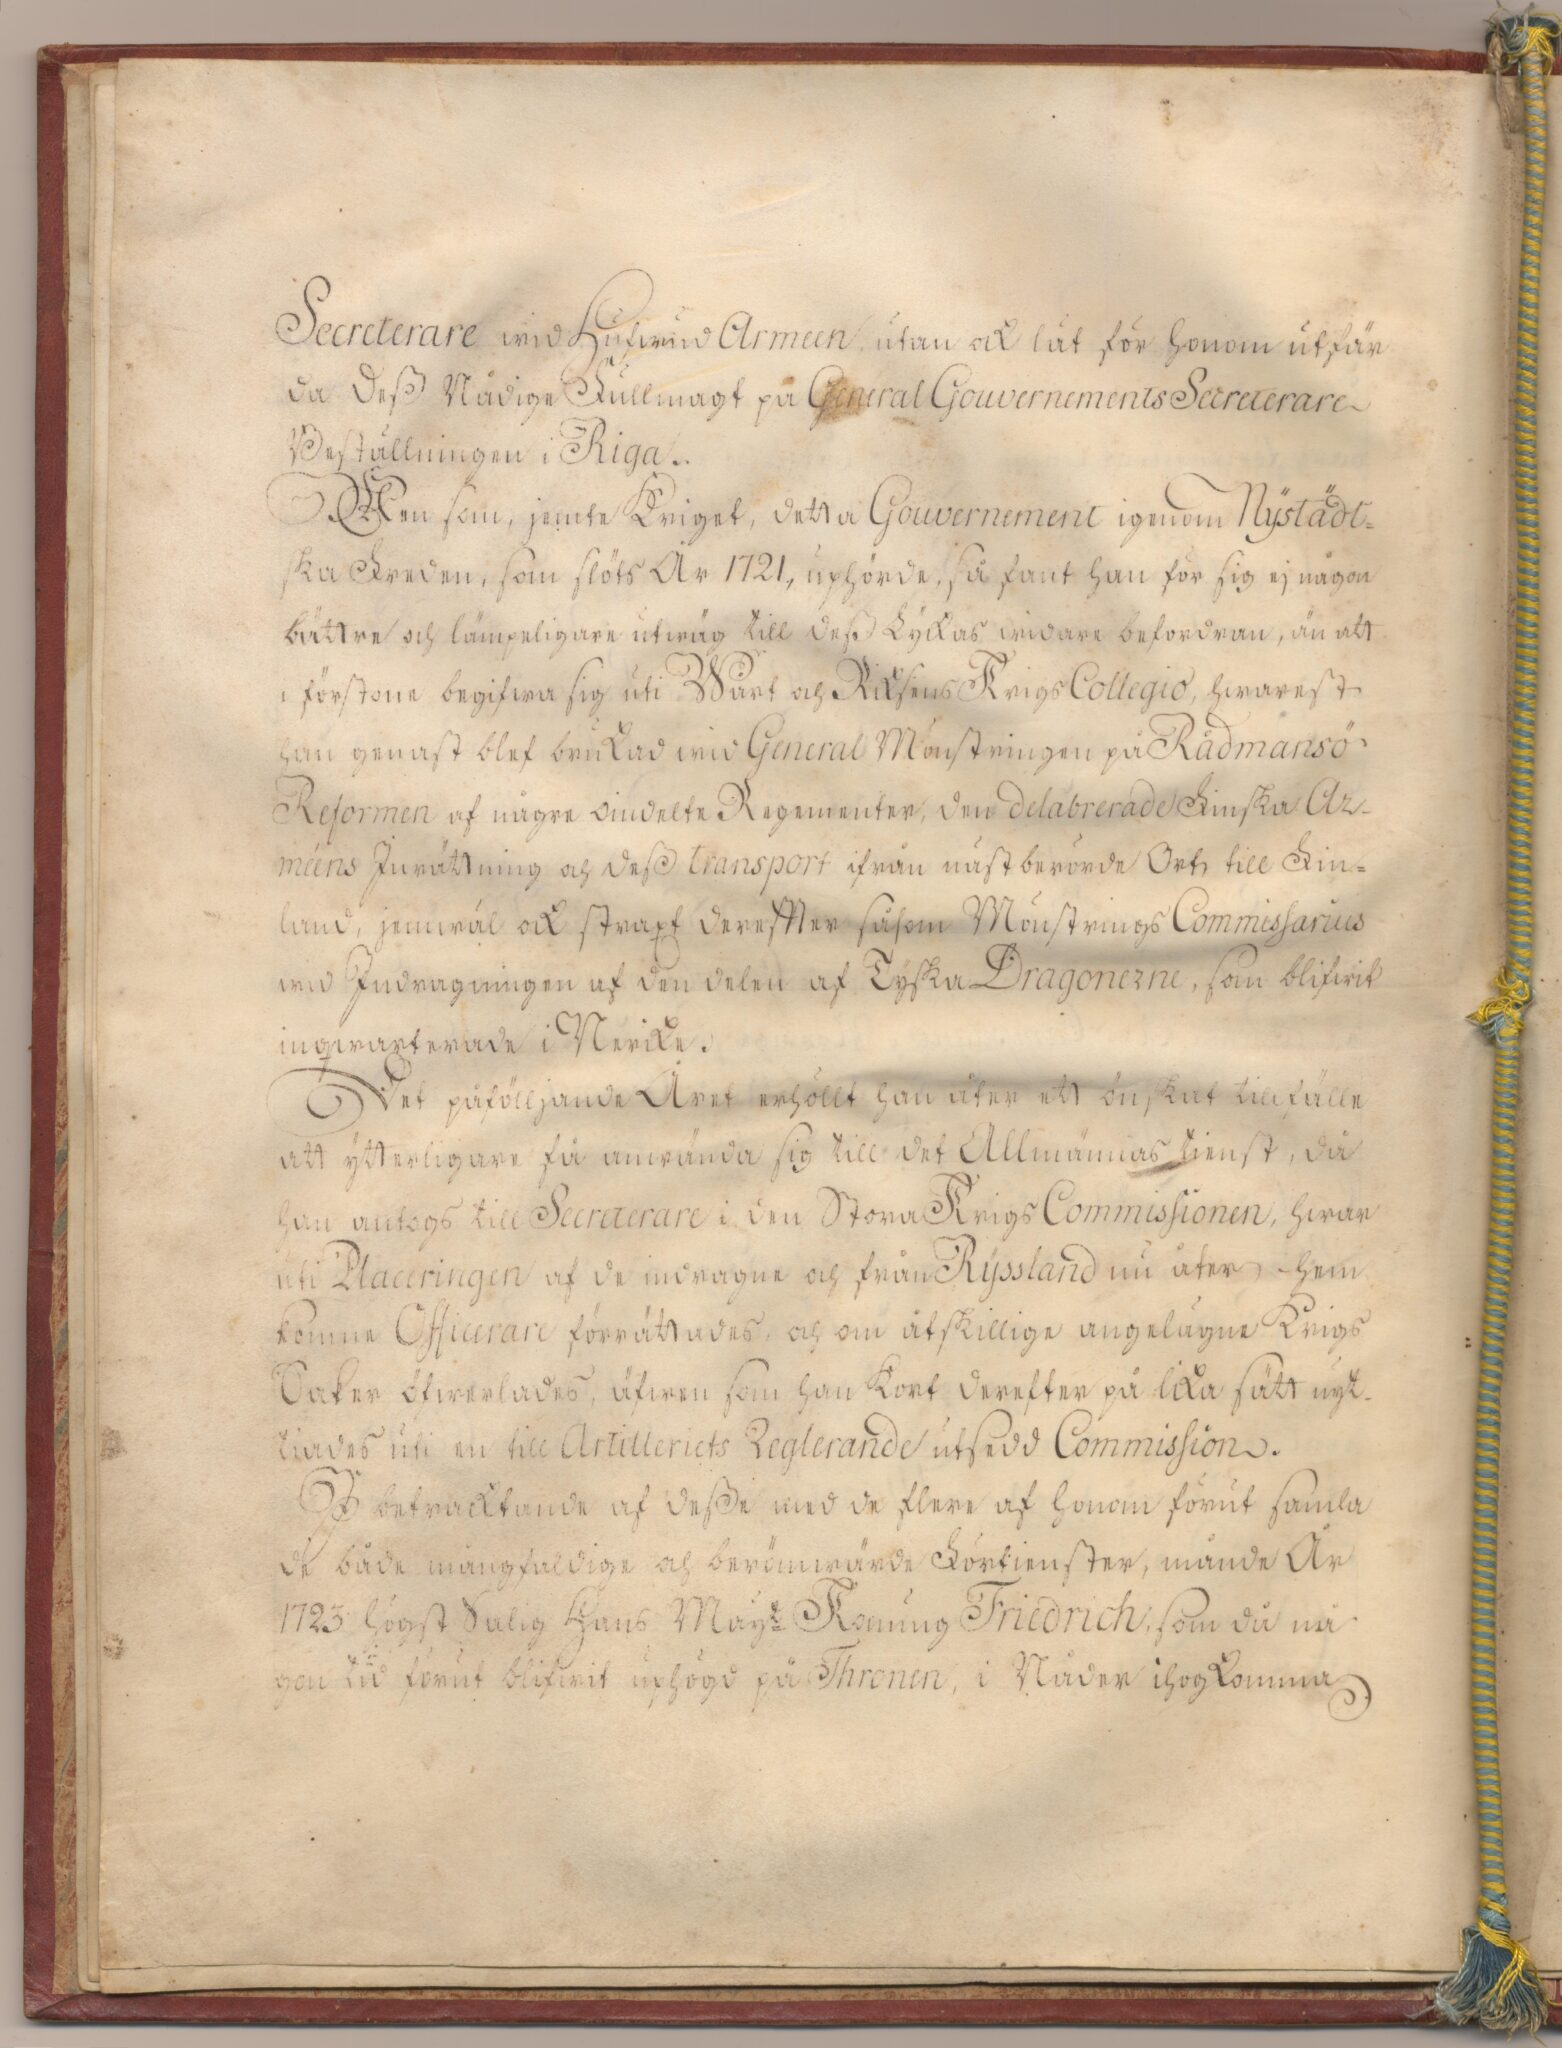 Secreterare wid Hufwud Armeen, utan ock låt för honom utfär
da Deß Nådige Fullmagt på General Gouvernements Secreterare
Beställningen i Riga.
Men som, jemte Kriget, detta Gouvernement igenom Nÿstädt-
ska Freden, som slöts År 1721, uphörde, så fant han för sig ej någon
bättre och lämpeligare utwäg till deß Lyckas widare befordran, än att
i förstone begifwa sig uti Wårt och Riksens Krigs Collegio, hwarest
han genast blef brukad wid General Mönstringen på Rådmansö
Reformen af någre oindelte Regementer, den delabrerade Finska Ar-
méens Inrättning och deß transport ifrån nästberörde Ort till Fin-
land, jemwäl ock straxt derefter såsom Mönstrings Commissarius
wid Indragningen af den delen af Tyska Dragonerne, som blifwit
inqwarterade i Nericke.
Det påfölljande Året erhöllt han åter ett önskat tillfälle
att ÿtterligare få anwända sig till det Allmännas tienst, då
han antogs till Secreterare i den Stora Krigs Commissionen, hwar
uti Placeringen af de indragne och från Ryssland nu åter hem
komne Officerare förrättades, och om åtskillige angelägne Krigs
Saker öfwerlades, äfwen som han kort derefter på lika sätt nyt-
tiades uti en till Artilleriets Reglerande utsedd Commission.
I betracktande af deße med de flere af honom förut samla
de både mångfaldige och berömwärde Förtienster, månde År
1723 högst Salig Hans Maÿt Konung Friedrich, som då nå
gon tid förut blifwit uphögd på Thronen, i Nåder ihogkomma